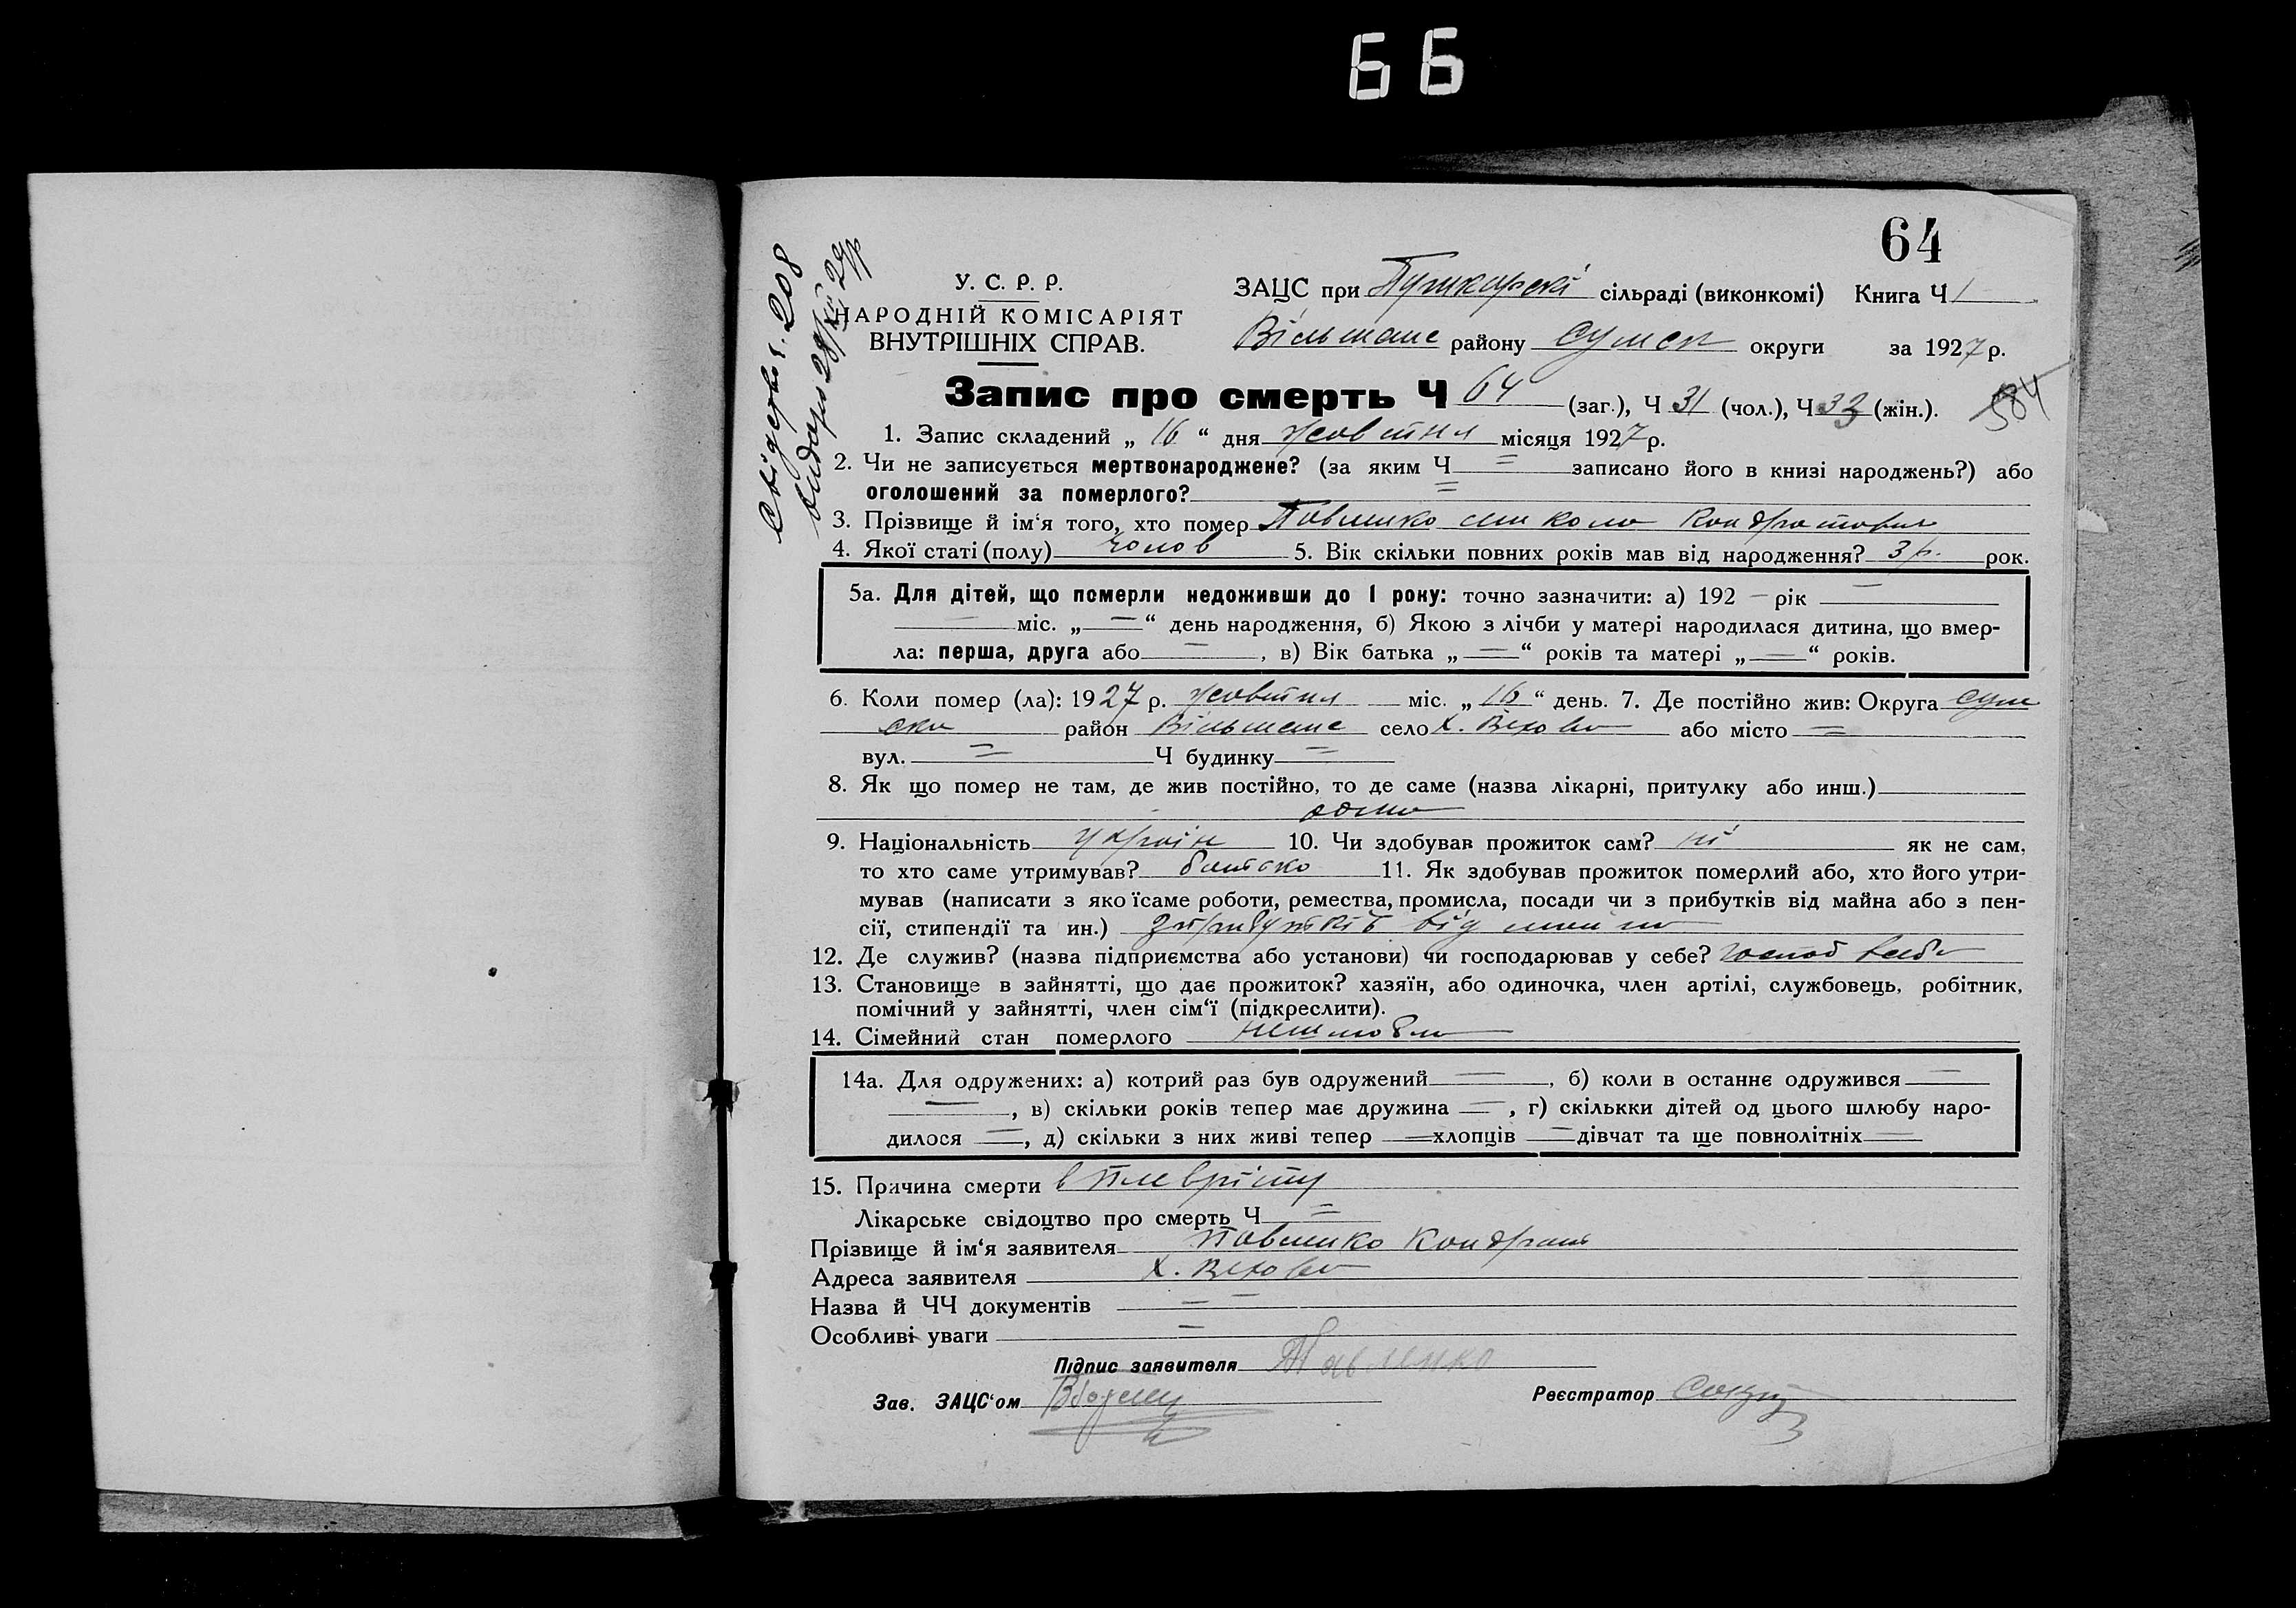 66
64
Свідоцтво ч. 208
У. С. Р. Р.
НАРОДНІЙ КОМІСАРІЯТ
ВНУТРІШНІХ СПРАВ.
ЗАЦС при Пушкарскі сільраді (виконкомі) Книга Ч 1
Вільшанс району Сумск округи за 1927 р.
Запис про смерть Ч 64 (заг.), Ч 31 (чол.), Ч 33 (жін.). 584
1. Запис складений „ 16 “ дня жовтня місяця 1927 р.
2. Чи не записується мертвонароджене? (за яким Ч = записано його в книзі народжень?) або
оголошений за померлого? =
3. Прізвище й ім‘я того, хто помер Павленко Микола Кондратович
4. Якої статі (полу) чолов 5. Вік скільки повних років мав від народження? 3 р. рок.
5а. Для дітей, що померли недоживши до 1 року: точно зазначити: а) 192 — рік —
— міс. „ — “ день народження, б) Якою з лічби у матері народилася дитина, що вмер-
ла: перша, друга або —, в) Вік батька „ — “ років та матері „ — “ років.
6. Коли помер (ла): 1927 р. жовтня міс. „ 16 “ день. 7. Де постійно жив: Округа Сум
ска район Вільшанс село х. Вехова або місто =
вул. = Ч будинку =
8. Як що помер не там, де жив постійно, то де саме (назва лікарні, притулку або инш.)
дома
9. Національність україн 10. Чи здобував прожиток сам? ні як не сам,
то хто саме утримував? батько 11. Як здобував прожиток померлий або, хто його утри-
мував (написати з яко їсаме роботи, ремества, промисла, посади чи з прибутків від майна або з пен-
сії, стипендії та ин.) зприбутків від майна
12. Де служив? (назва підприємства або установи) чи господарював у себе? госпоб всебя
13. Становище в зайнятті, що дає прожиток? хазяїн, або одиночка, член артілі, службовець, робітник,
помічний у зайнятті, член сім‘ї (підкреслити).
14. Сімейний стан померлого
14а. Для одружених: а) котрий раз був одружений —, б) коли в останнє одружився —
—, в) скільки років тепер має дружина —, г) скількки дітей од цього шлюбу наро-
дилося —, д) скільки з них живі тепер — хлопців — дівчат та ще повнолітніх —
15. Причина смерти в плеврітту
Лікарське свідоцтво про смерть Ч =
Прізвище й ім‘я заявителя Павленко Кондрат
Адреса заявителя х. Вехова
Назва й ЧЧ документів — —
Особливі уваги —
Підпис заявителя Павленко
Зав. ЗАЦС‘ом
Реєстратор